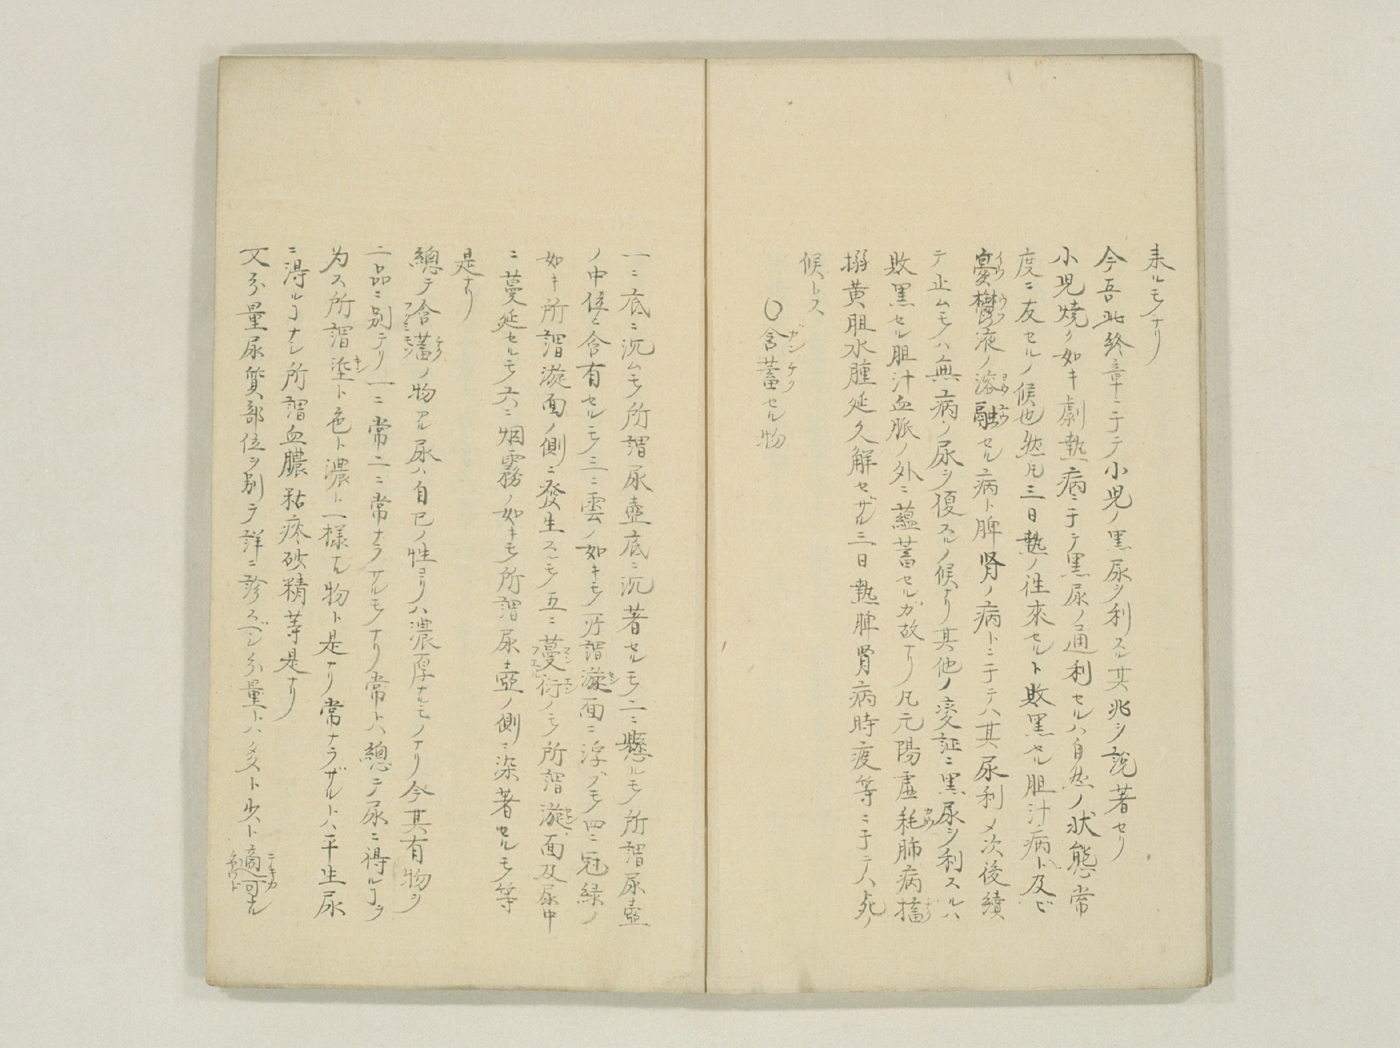 来ルモノナリ
今吾此終章ニ于テ小児ノ黒尿ヲ利スル其兆ヲ説著セリ
小児焼クノ如キ劇熱病ニ于テ黒尿ノ通利セルハ自然ノ状態常
度ニ友セルノ候也然𪜈三日熱ノ往来セルト敗黒セル胆汁病ト及ビ
憂鬱液ノ溶融セル病ト脾腎ノ病トニ于テハ其尿利〆次後續
テ止ムモノハ無病ノ尿ヲ復スルノ候ナリ其他ノ変証ニ黒尿ヲ利スルハ
敗黒セル胆汁血脈ノ外ニ蘊蓄セルガ故ナリ凡元陽虚耗肺病搐
搦黄胆水腫延久解セザル三日熱脾腎病時疫等ニ于テハ死ノ
候トス
〇含蓄セル物
一ニ底ニ沉ムモノ所謂尿壺底ニ沉著セルモノ二ニ懸ルモノ所謂尿壺
ノ中位ニ含有セルモノ三ニ雲ノ如キモノ所謂漩面ニ浮ブモノ四ニ冠縁ノ
如キ所謂漩面ノ側ニ発生スルモノ五ニ蔓衍ノモノ所謂漩面及尿中
ニ蔓延セルモノ六ニ烟霧ノ如キモノ所謂尿壺ノ側ニ染著セルモノ等
是ナリ
總テ含蓄ノ物アル尿ハ自己ノ性ヨリハ濃厚ナルモノナリ今其有物ヲ
二品ニ別テリ一ニ常二ニ常ナラザルモノナリ常トハ總テ尿ニ得ルヿヲ
为ス所謂滓ト色ト濃ト一様ナル物ト是ナリ常ナラザルトハ平生尿
ニ得ルヿナシ所謂血膿粘痰砂精等是ナリ
又分量尿質部位ヲ別テ詳ニ診スベシ分量トハ多ト少ト適可ナル